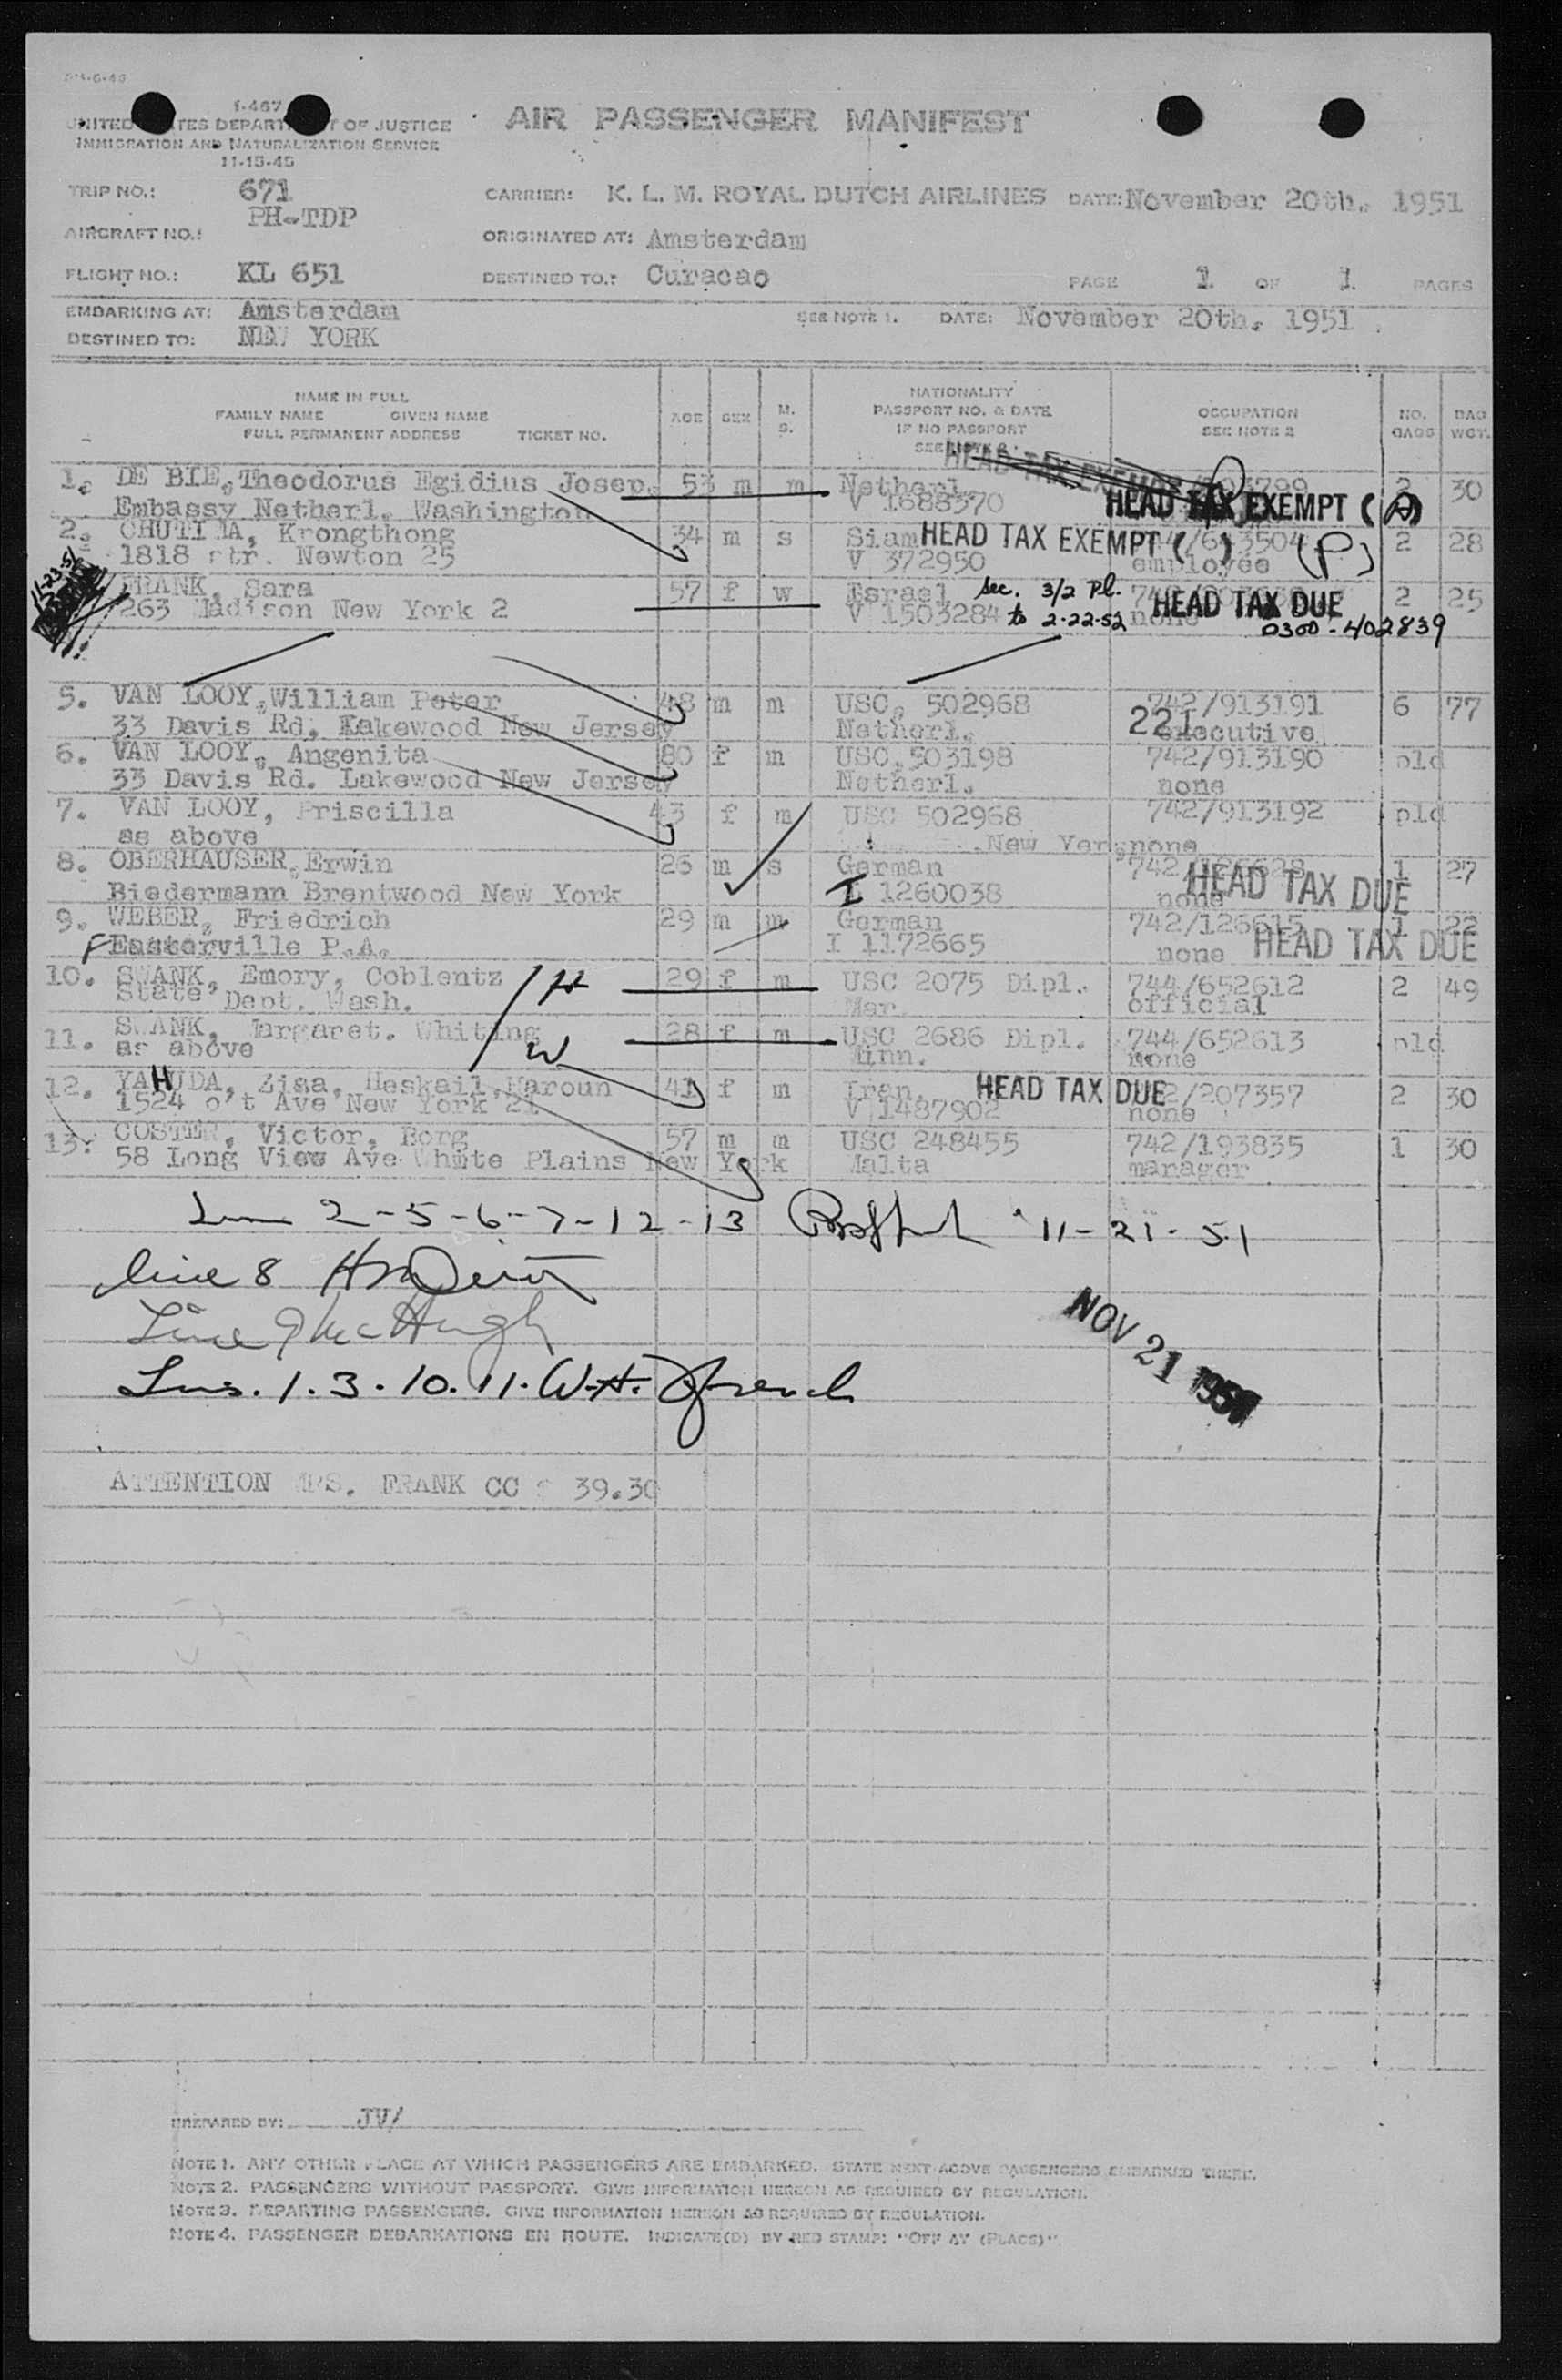 I-467
UNITED STATES DEPARTMENT OF JUSTICE
IMMIGRATION AND NATURALIZATION SERVICE
AIR PASSENGER MANIFEST
TRIP NO.: 671
CARRIER: K. L. M. ROYAL DUTCH AIRLINES DATE: November 20th. 1951
AIRCRAFT NO.: PH-TDP
ORIGINATED AT: Amsterdam
FLIGHT NO.: KL 651
DESTINED TO.: Curacao
PAGE 1 OF 1 PAGES
EMBARKING AT: Amsterdam
SEE NOTE 1. DATE: November 20th. 1951
DESTINED TO: NEW YORK
NAME IN FULL
FAMILY NAME GIVEN NAME
FULL PERMANENT ADDRESS TICKET NO.
AGE SEX M. S.
NATIONALITY
PASSPORT NO. & DATE
IF NO PASSPORT
SEE NOTE 2
OCCUPATION
SEE NOTE 2
NO. BAGS
BAG WGT.
1. DE BIE, Theodorus Egidius Josep. 53 m m Netherl. 2 30
Embassy Netherl. Washington V 1688370 HEAD TAX EXEMPT (A)
2. CHUTIMA, Krongthong 34 m s Siam HEAD TAX EXEMPT ( ) (P) 2 28
1818 str. Newton 25 V 372950 employee
11-23-51
FRANK, Sara 57 f w Israel sec. 3/2 Pl. HEAD TAX DUE 2 25
263 Madison New York 2 V 1503284 to 2-22-52 none 0300-402839
5. VAN LOOY, William Peter 48 m m USC, 502968 742/913191 6 77
33 Davis Rd. Lakewood New Jersey Netherl. 221 executive
6. VAN LOOY, Angenita 80 f m USC, 503198 742/913190 pld
33 Davis Rd. Lakewood New Jersey Netherl. none
7. VAN LOOY, Priscilla 43 f m USC 502968 742/913192 pld
as above New Yer, none
8. OBERHAUSER, Erwin 26 m s German 1 27
Biedermann Brentwood New York I 1260038 none HEAD TAX DUE
9. WEBER, Friedrich 29 m m German 742/126615 1 22
Feasterville P.A. I 1172665 none HEAD TAX DUE
10. SWANK, Emory, Coblentz 29 f m USC 2075 Dipl. 744/652612 2 49
State Dept. Wash. Mar. official
11. SWANK, Margaret. Whiting 28 f m USC 2686 Dipl. 744/652613 pld
as above W Minn. none
12. YAHUDA, Ziga, Heskail, Haroun 41 f m Iran. HEAD TAX DUE 742/207357 2 30
1524 o't Ave New York 21 V 1487902 none
13. COSTER, Victor, Borg 57 m m USC 248455 742/193835 1 30
58 Long View Ave White Plains New York Malta manager
2-5-6-7-12-13 11-21-51
line 8
Line 9 McHugh
Lns. 1.3.10.11. W.H. French
NOV 21 1951
ATTENTION MRS. FRANK CC $ 39.30
PREPARED BY: JV/
NOTE 1. ANY OTHER PLACE AT WHICH PASSENGERS ARE EMBARKED. STATE NEXT ABOVE PASSENGERS EMBARKED THERE.
NOTE 2. PASSENGERS WITHOUT PASSPORT. GIVE INFORMATION HEREON AS REQUIRED BY REGULATION.
NOTE 3. DEPARTING PASSENGERS. GIVE INFORMATION HEREON AS REQUIRED BY REGULATION.
NOTE 4. PASSENGER DEBARKATIONS EN ROUTE. INDICATE(D) BY RED STAMP: "OFF AT (PLACE)"